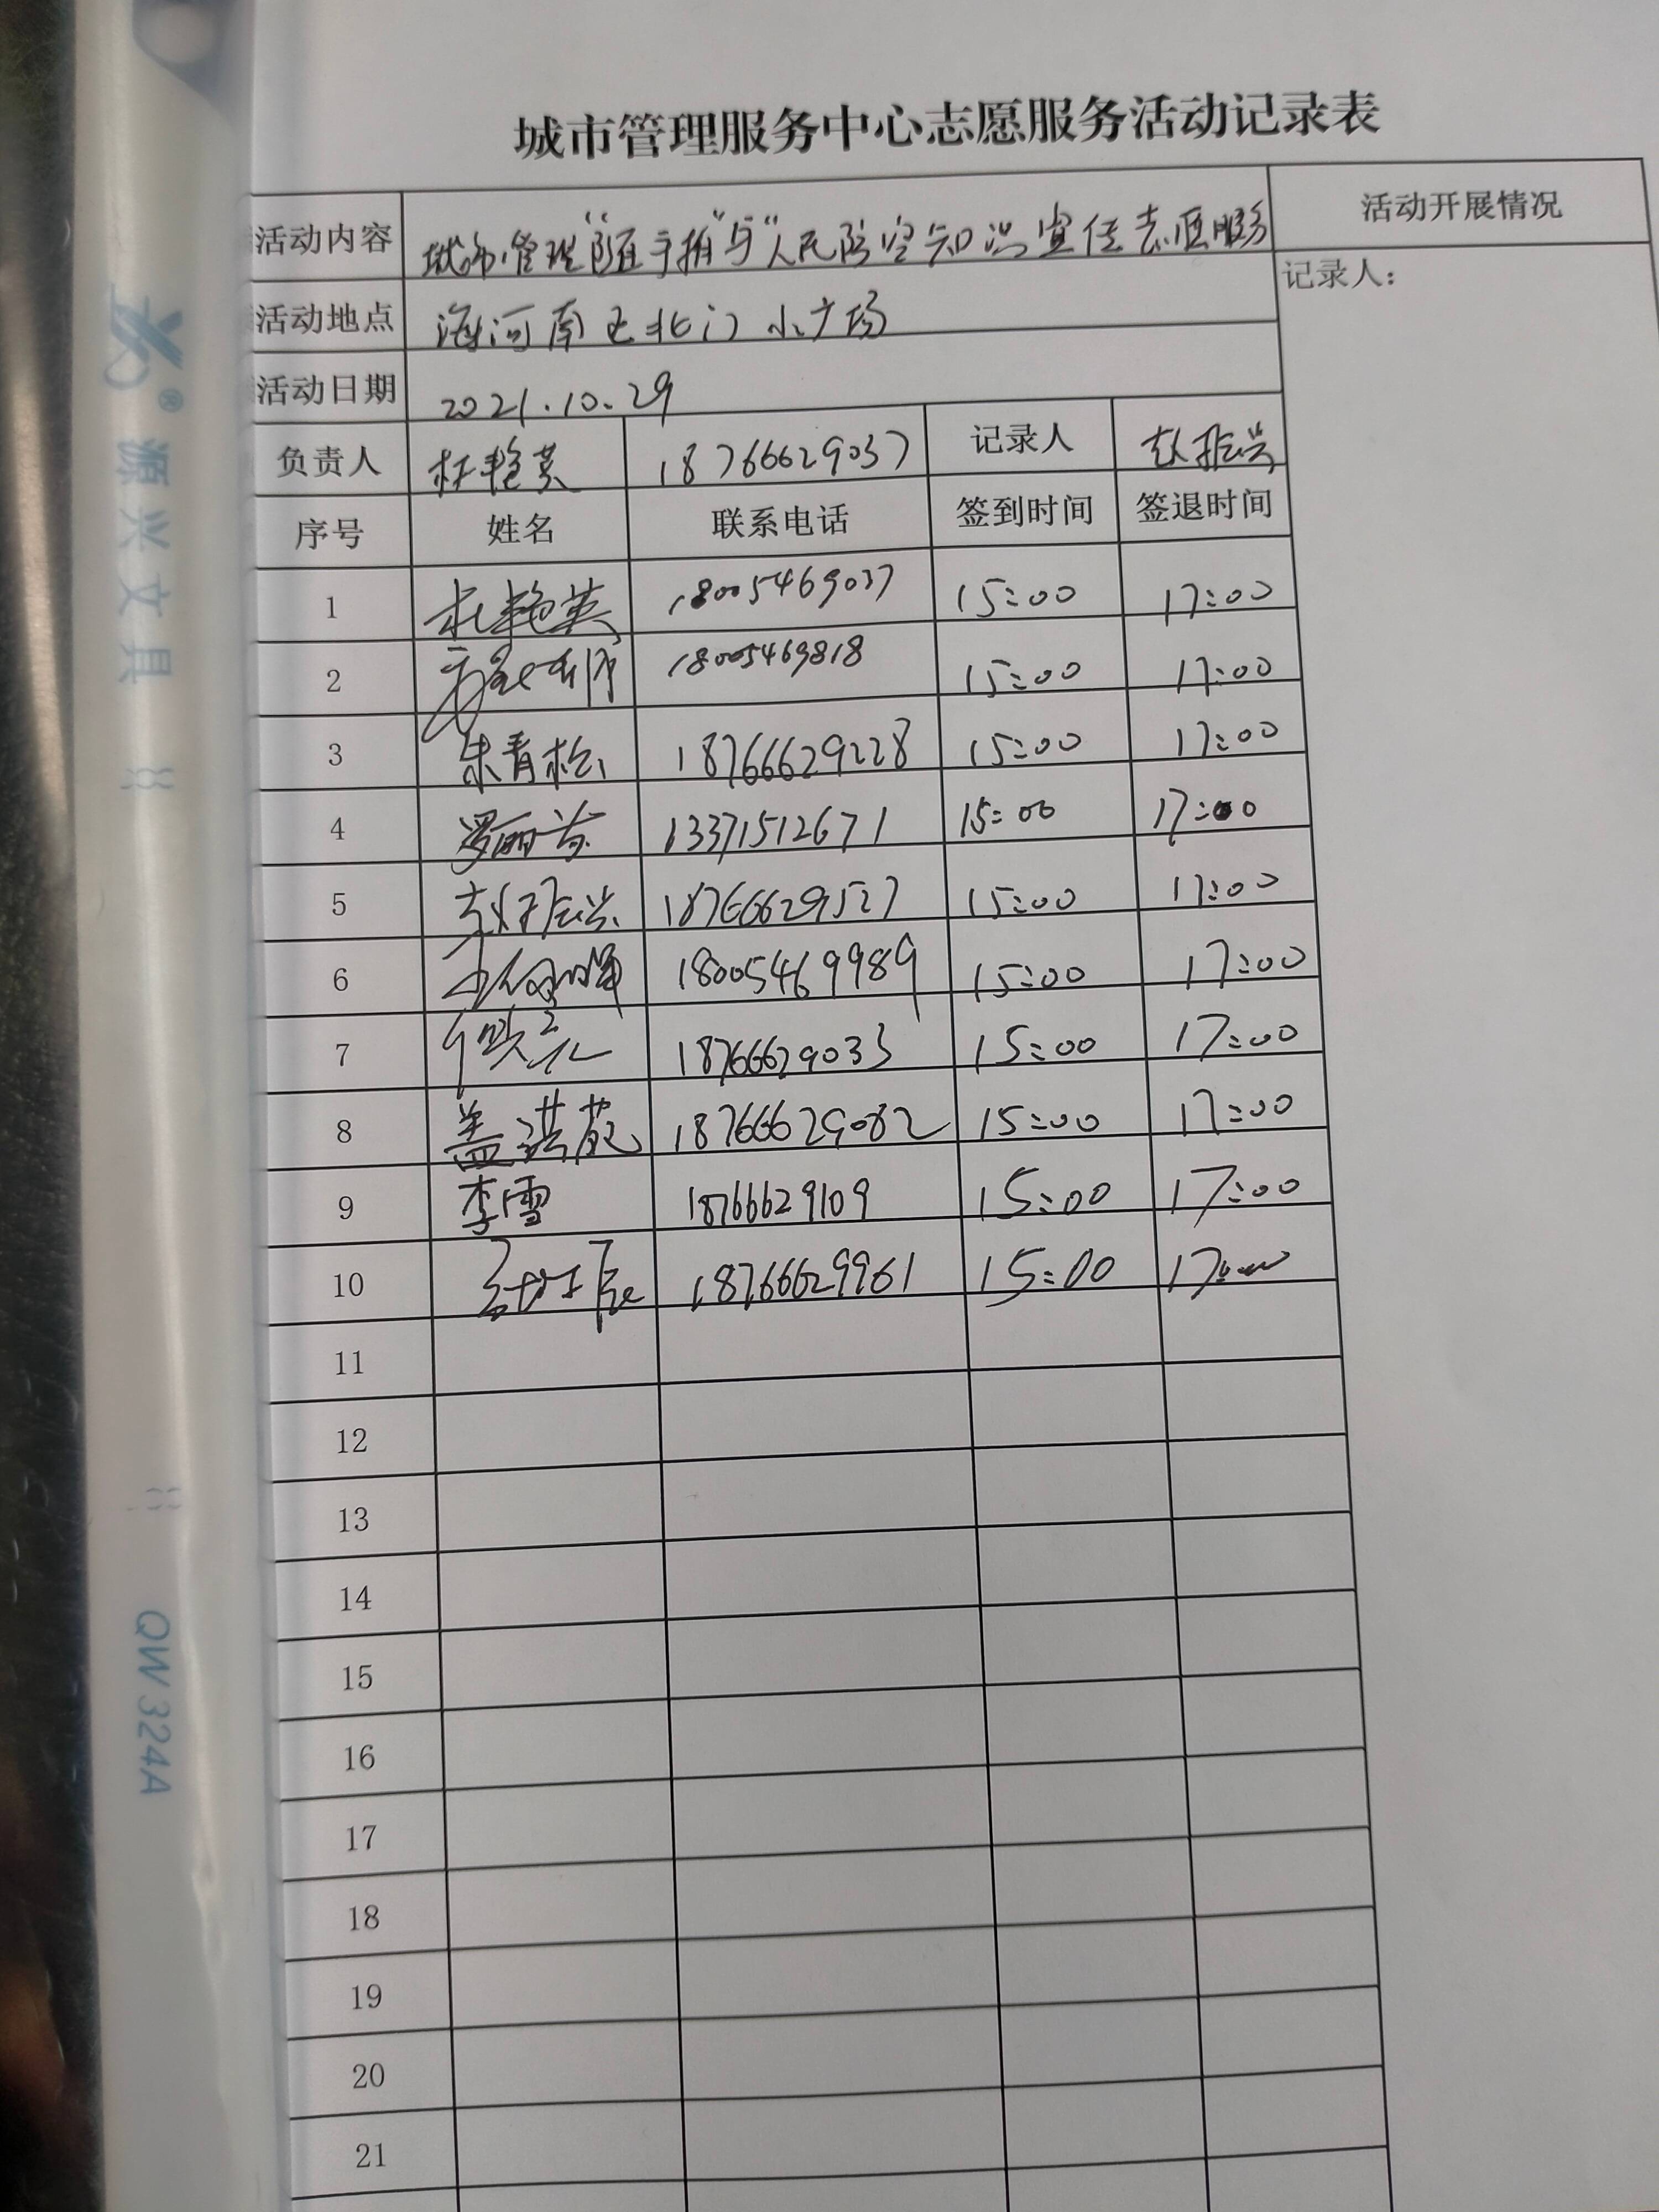 城市管理服务中心志愿服务活动记录表
活动内容 城市管理"随手拍"与"人民防空知识宣传志愿服务 活动开展情况
活动地点 海河南区北门小广场 记录人:
活动日期 2021.10.29
负责人 杜艳英 18766629037 记录人 赵振兴
序号 姓名 联系电话 签到时间 签退时间
1 杜艳英 18005469037 15:00 17:00
2 18005469818 15:00 17:00
3 朱青松 18766629228 15:00 17:00
4 罗丽芳 13371512671 15:00 17:00
5 赵振兴 18766629527 15:00 17:00
6 18005469989 15:00 17:00
7 18766629033 15:00 17:00
8 盖洪苑 18766629082 15:00 17:00
9 李雪 18766629109 15:00 17:00
10 18766629961 15:00 17:00
11
12
13
14
15
16
17
18
19
20
21
® 源兴文具
QW324A